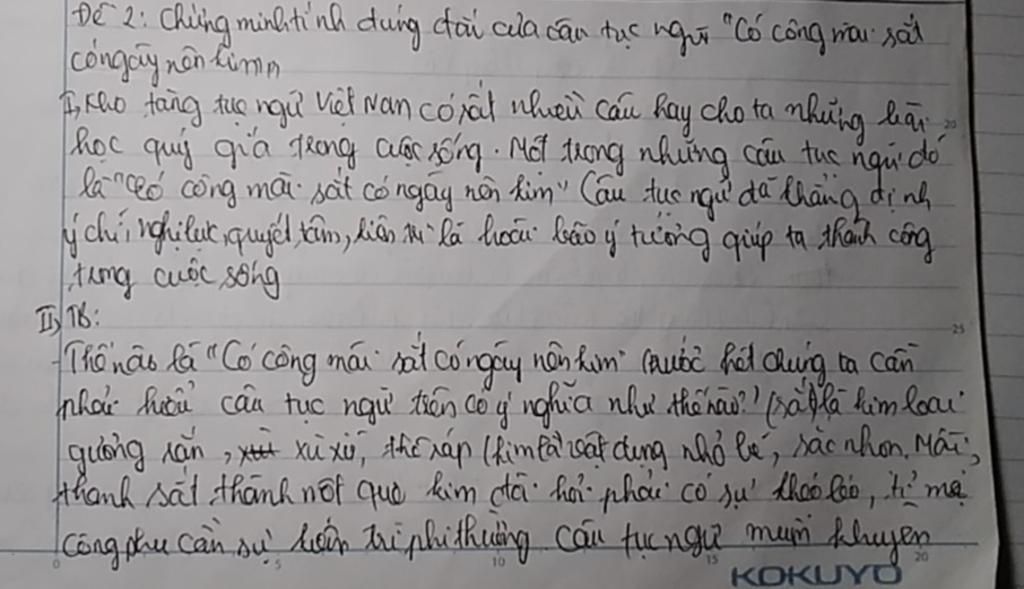 Đề 2: Chứng minh tính đúng đắn của câu tục ngữ "Có công mài sắt
có ngày nên kim"
I, Kho tàng tục ngữ Việt Nam có rất nhiều câu hay cho ta những bài
học quý giá trong cuộc sống. Một trong những câu tục ngữ đó
là "Có công mài sắt có ngày nên kim" Câu tục ngữ đã khẳng định
ý chí, nghị lực, quyết tâm, kiên trì là hoài bão ý tưởng giúp ta thành công
trong cuộc sống
II, TB:
- Thế nào là "Có công mài sắt có ngày nên kim" trước hết chúng ta cần
phải hiểu câu tục ngữ trên có ý nghĩa như thế nào? (sắt) là kim loại
sần, xù xì, thô ráp (kim là vật dụng nhỏ bé, sắc nhọn. Mài
thanh sắt thành một que kim đòi hỏi phải có sự khéo léo, tỉ mẻ
công phu cần sự kiên trì phi thường. Câu tục ngữ muốn khuyên
0 5 10 15 20
20
25
KOKUYO